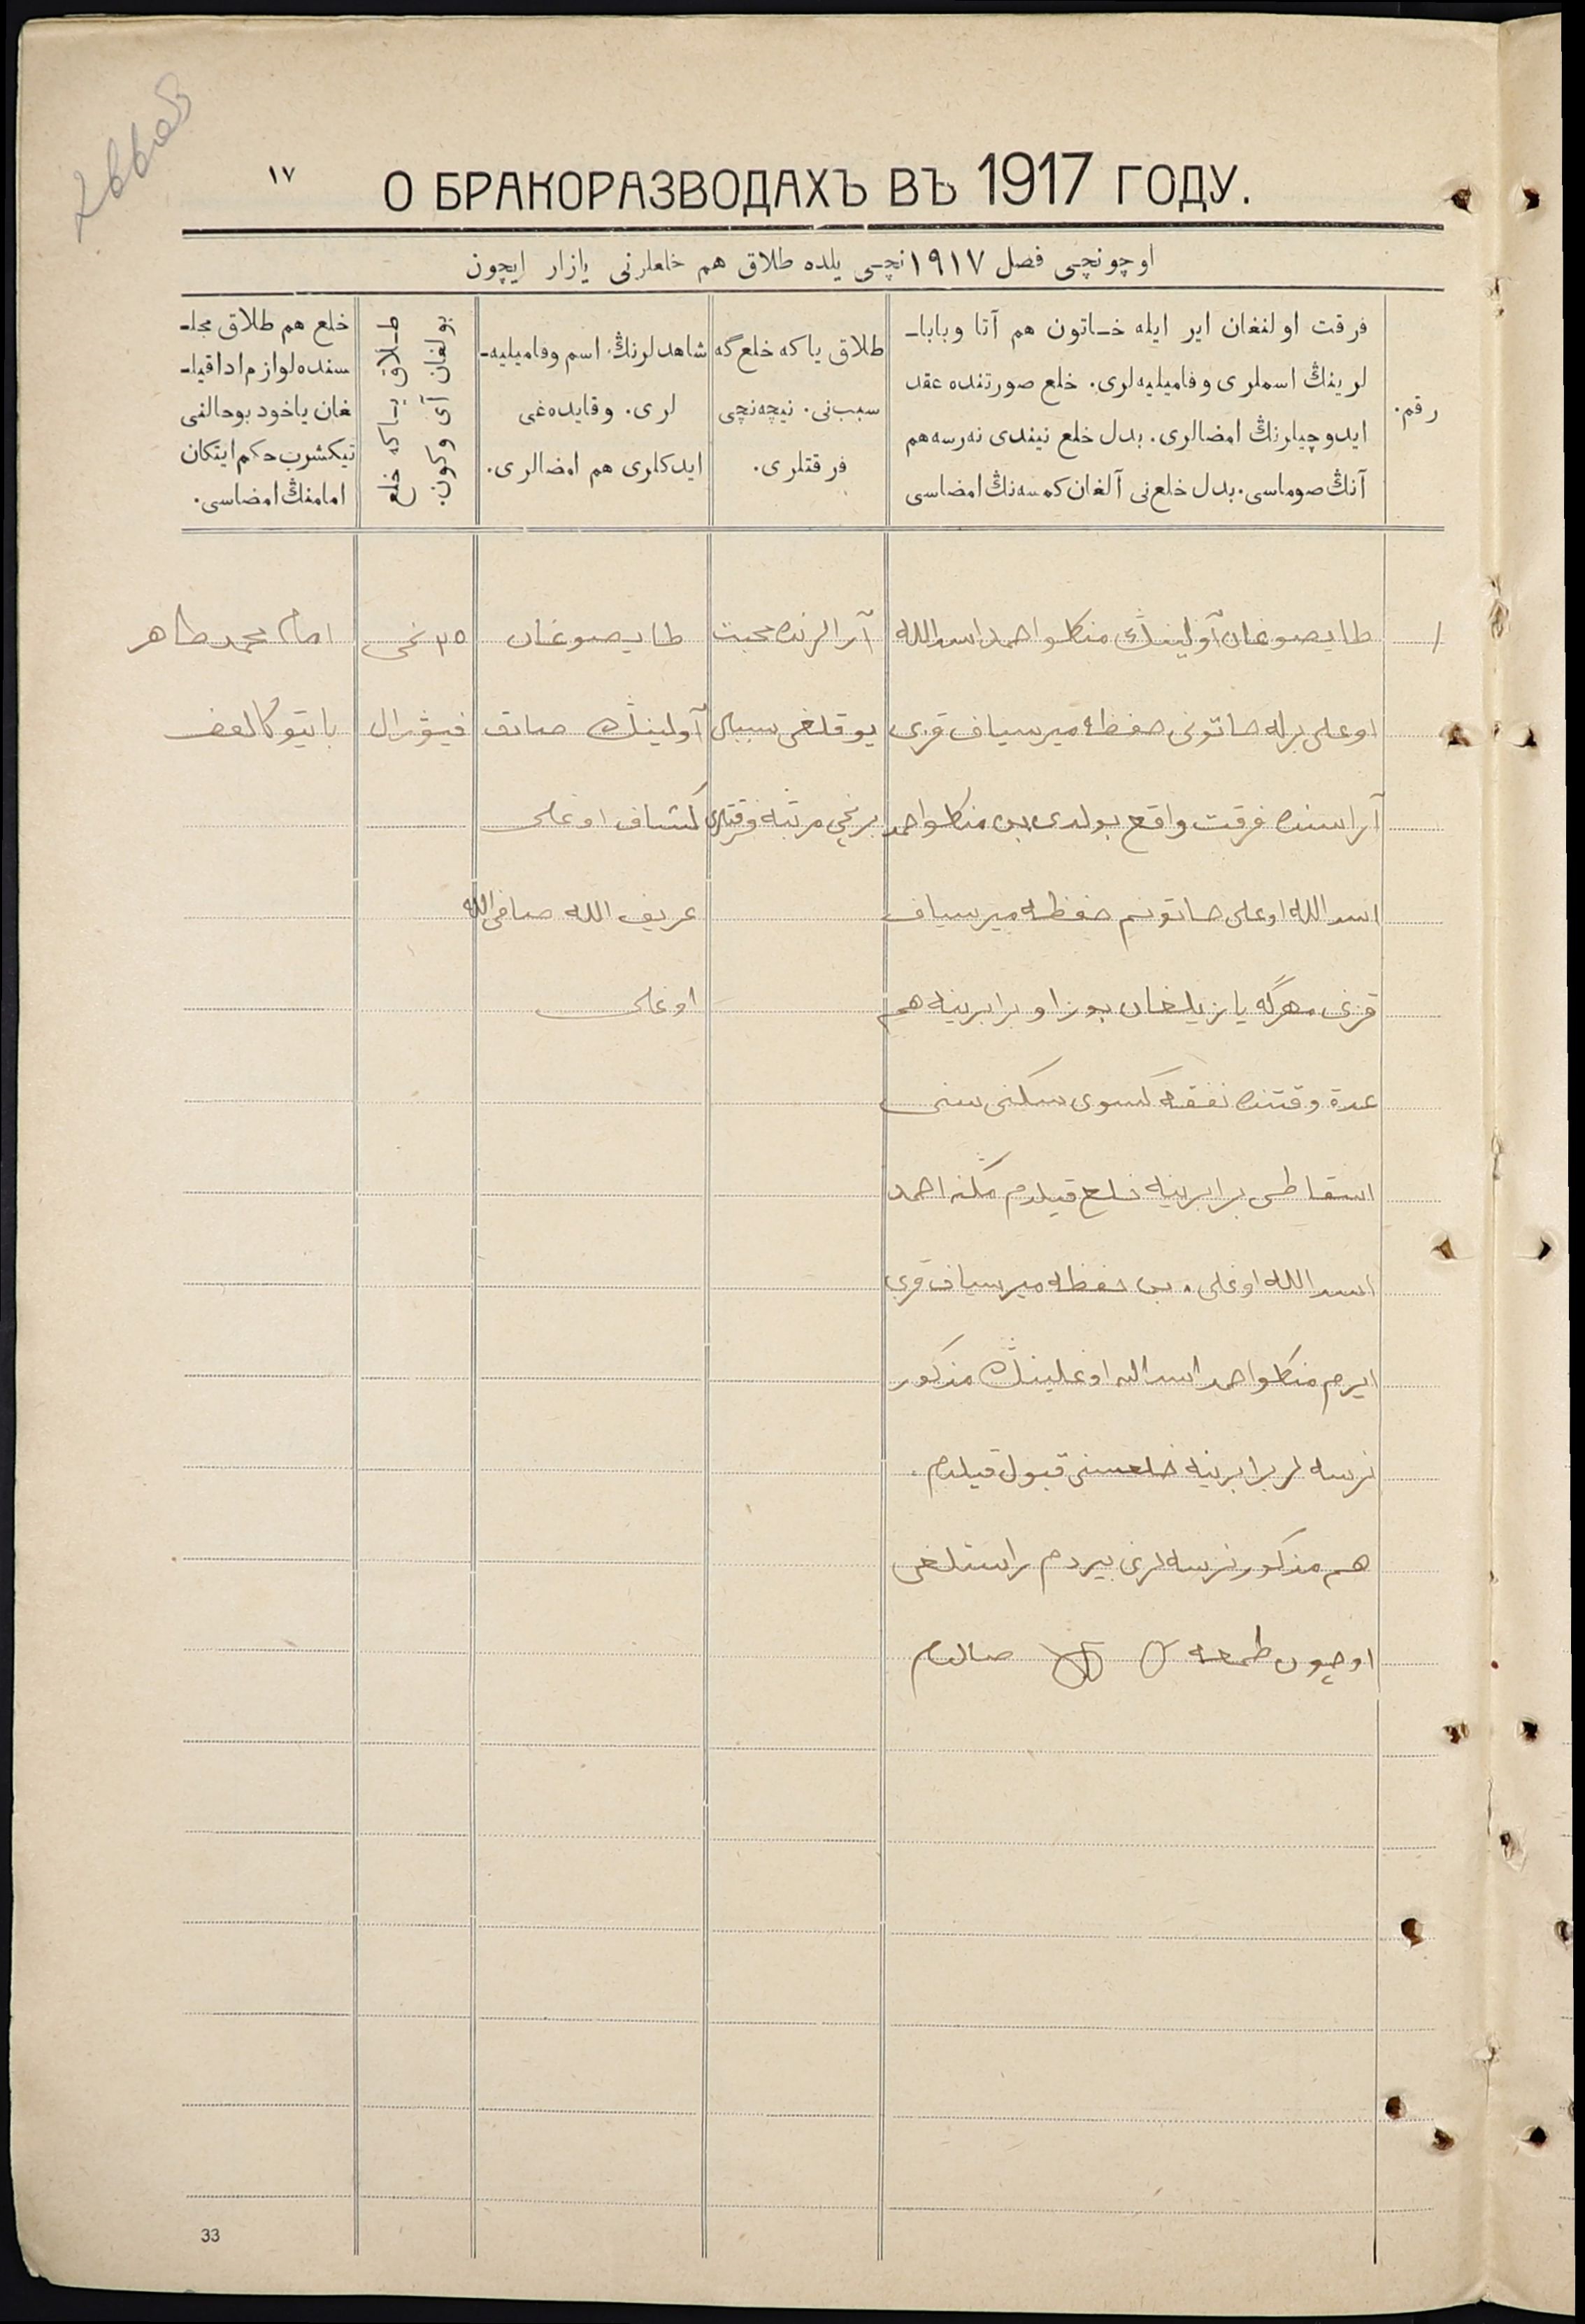 ١٧
О БРАКОРАЗВОДАХЪ ВЪ 1917 ГОДУ.
اوچونچى فصل ١٩١٧نچى يلده طلاق هم خلعلرنى يازار ايچون
رقم.
فرقت اولنغان اير ايله خاتون هم آتا وبابا-
لرينڭ اسملرى وفاميليه‌لرى. خلع صورتنده عقد
ايدوچيلرنڭ امضالرى. بدل خلع نيندى نه‌رسه هم
آنڭ صوماسى. بدل خلع‌نى آلغان كمسه‌نڭ امضاسى
طلاق ياكه خلع‌گه
سبب‌نى. نيچه‌نچى
فرقتلرى.
شاهدلرنڭ اسم وفاميليه-
لرى. وقايده‌غى
ايدكلرى هم امضالرى.
طلاق ياكه خلع
بولغان آى وكون.
خلع هم طلاق مجلـ
سنده لوازم اداقيلـ
غان ياخود بوحالنى
تيكشرب حكم ايتكان
امامنڭ امضاسى.
١
طايصوغان آولينڭ منكلواحمد اسدالله
اوغلى برله خاتونى حفظه ميرسياف قزى
آراسنده فرقت واقع بولدى بن منكلواحمد
اسدالله اوغلى خاتونم حفظه ميرسياف
قزنى مهرگه يازيلغان بوزاو برابرينه هم
عدة وقتنده نفقه كسوى سكنى سنى
اسقاطى برابرينه خلع قيلدم منكلواحمد
اسدالله اوغلى. بن حفظه ميرسياف قزى
ايرم منكلواحمد اسدالله اوغلينڭ مذكور
نرسه لر برابرينه خلعسنى قبول قيلدم.
هم مذكور نرسه لرنى بيردم راستلغى
اوچون طمغه صالدم
آرالرنده محبت
يوقلغى سببلى
برنچى مرتبه فرقتلرى
طايصوغان
آولينڭ صادق
كشاف اوغلى
عريف الله صافى الله
اوغلى
٢٥ نچى
فيورال
امام محمد طاهر
33